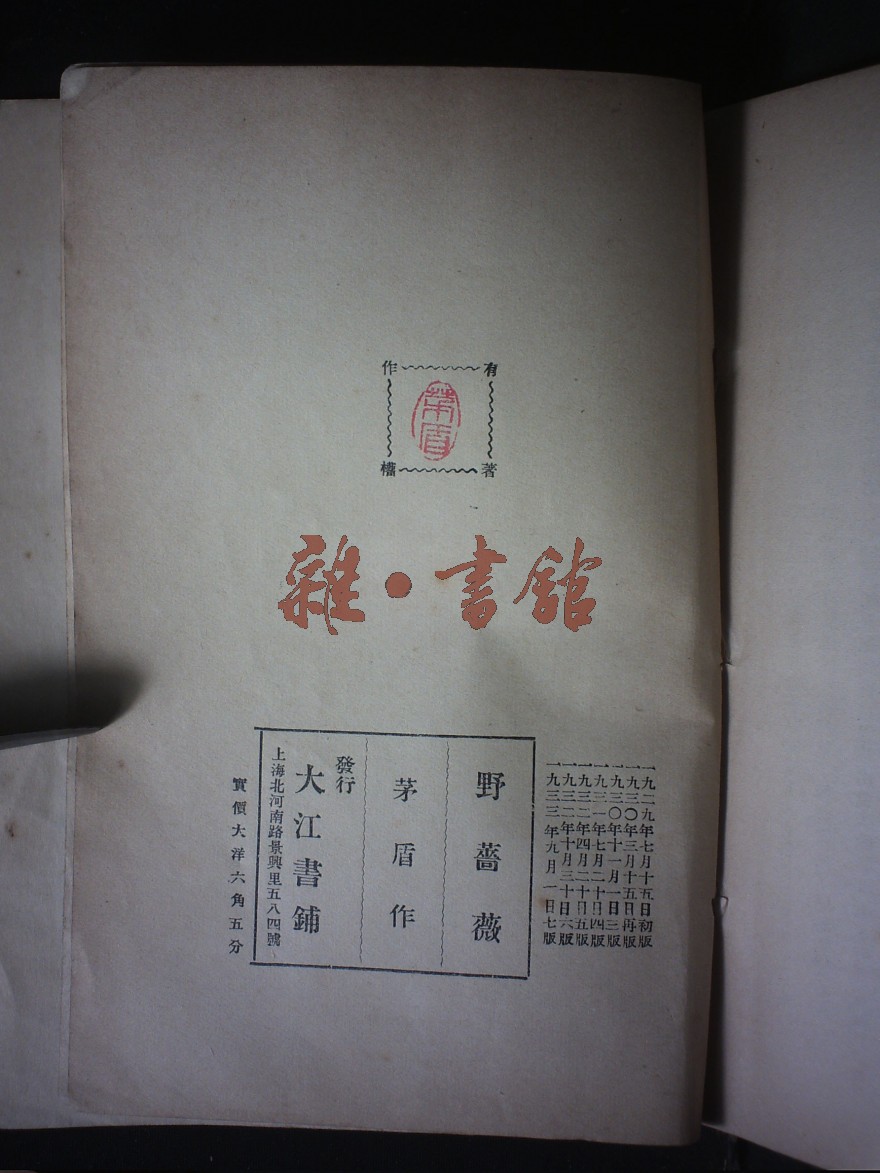 有著作權
茅盾
雜•書館
一九二九年七月十五日初版
一九三〇年三月十五日再版
一九三〇年十一月一日三版
一九三一年七月二十日四版
一九三二年四月二十日五版
一九三二年十月三十日六版
一九三三年九月一日七版
野薔薇
茅盾作
發行
大江書鋪
上海北河南路景興里五八四號
實價大洋六角五分